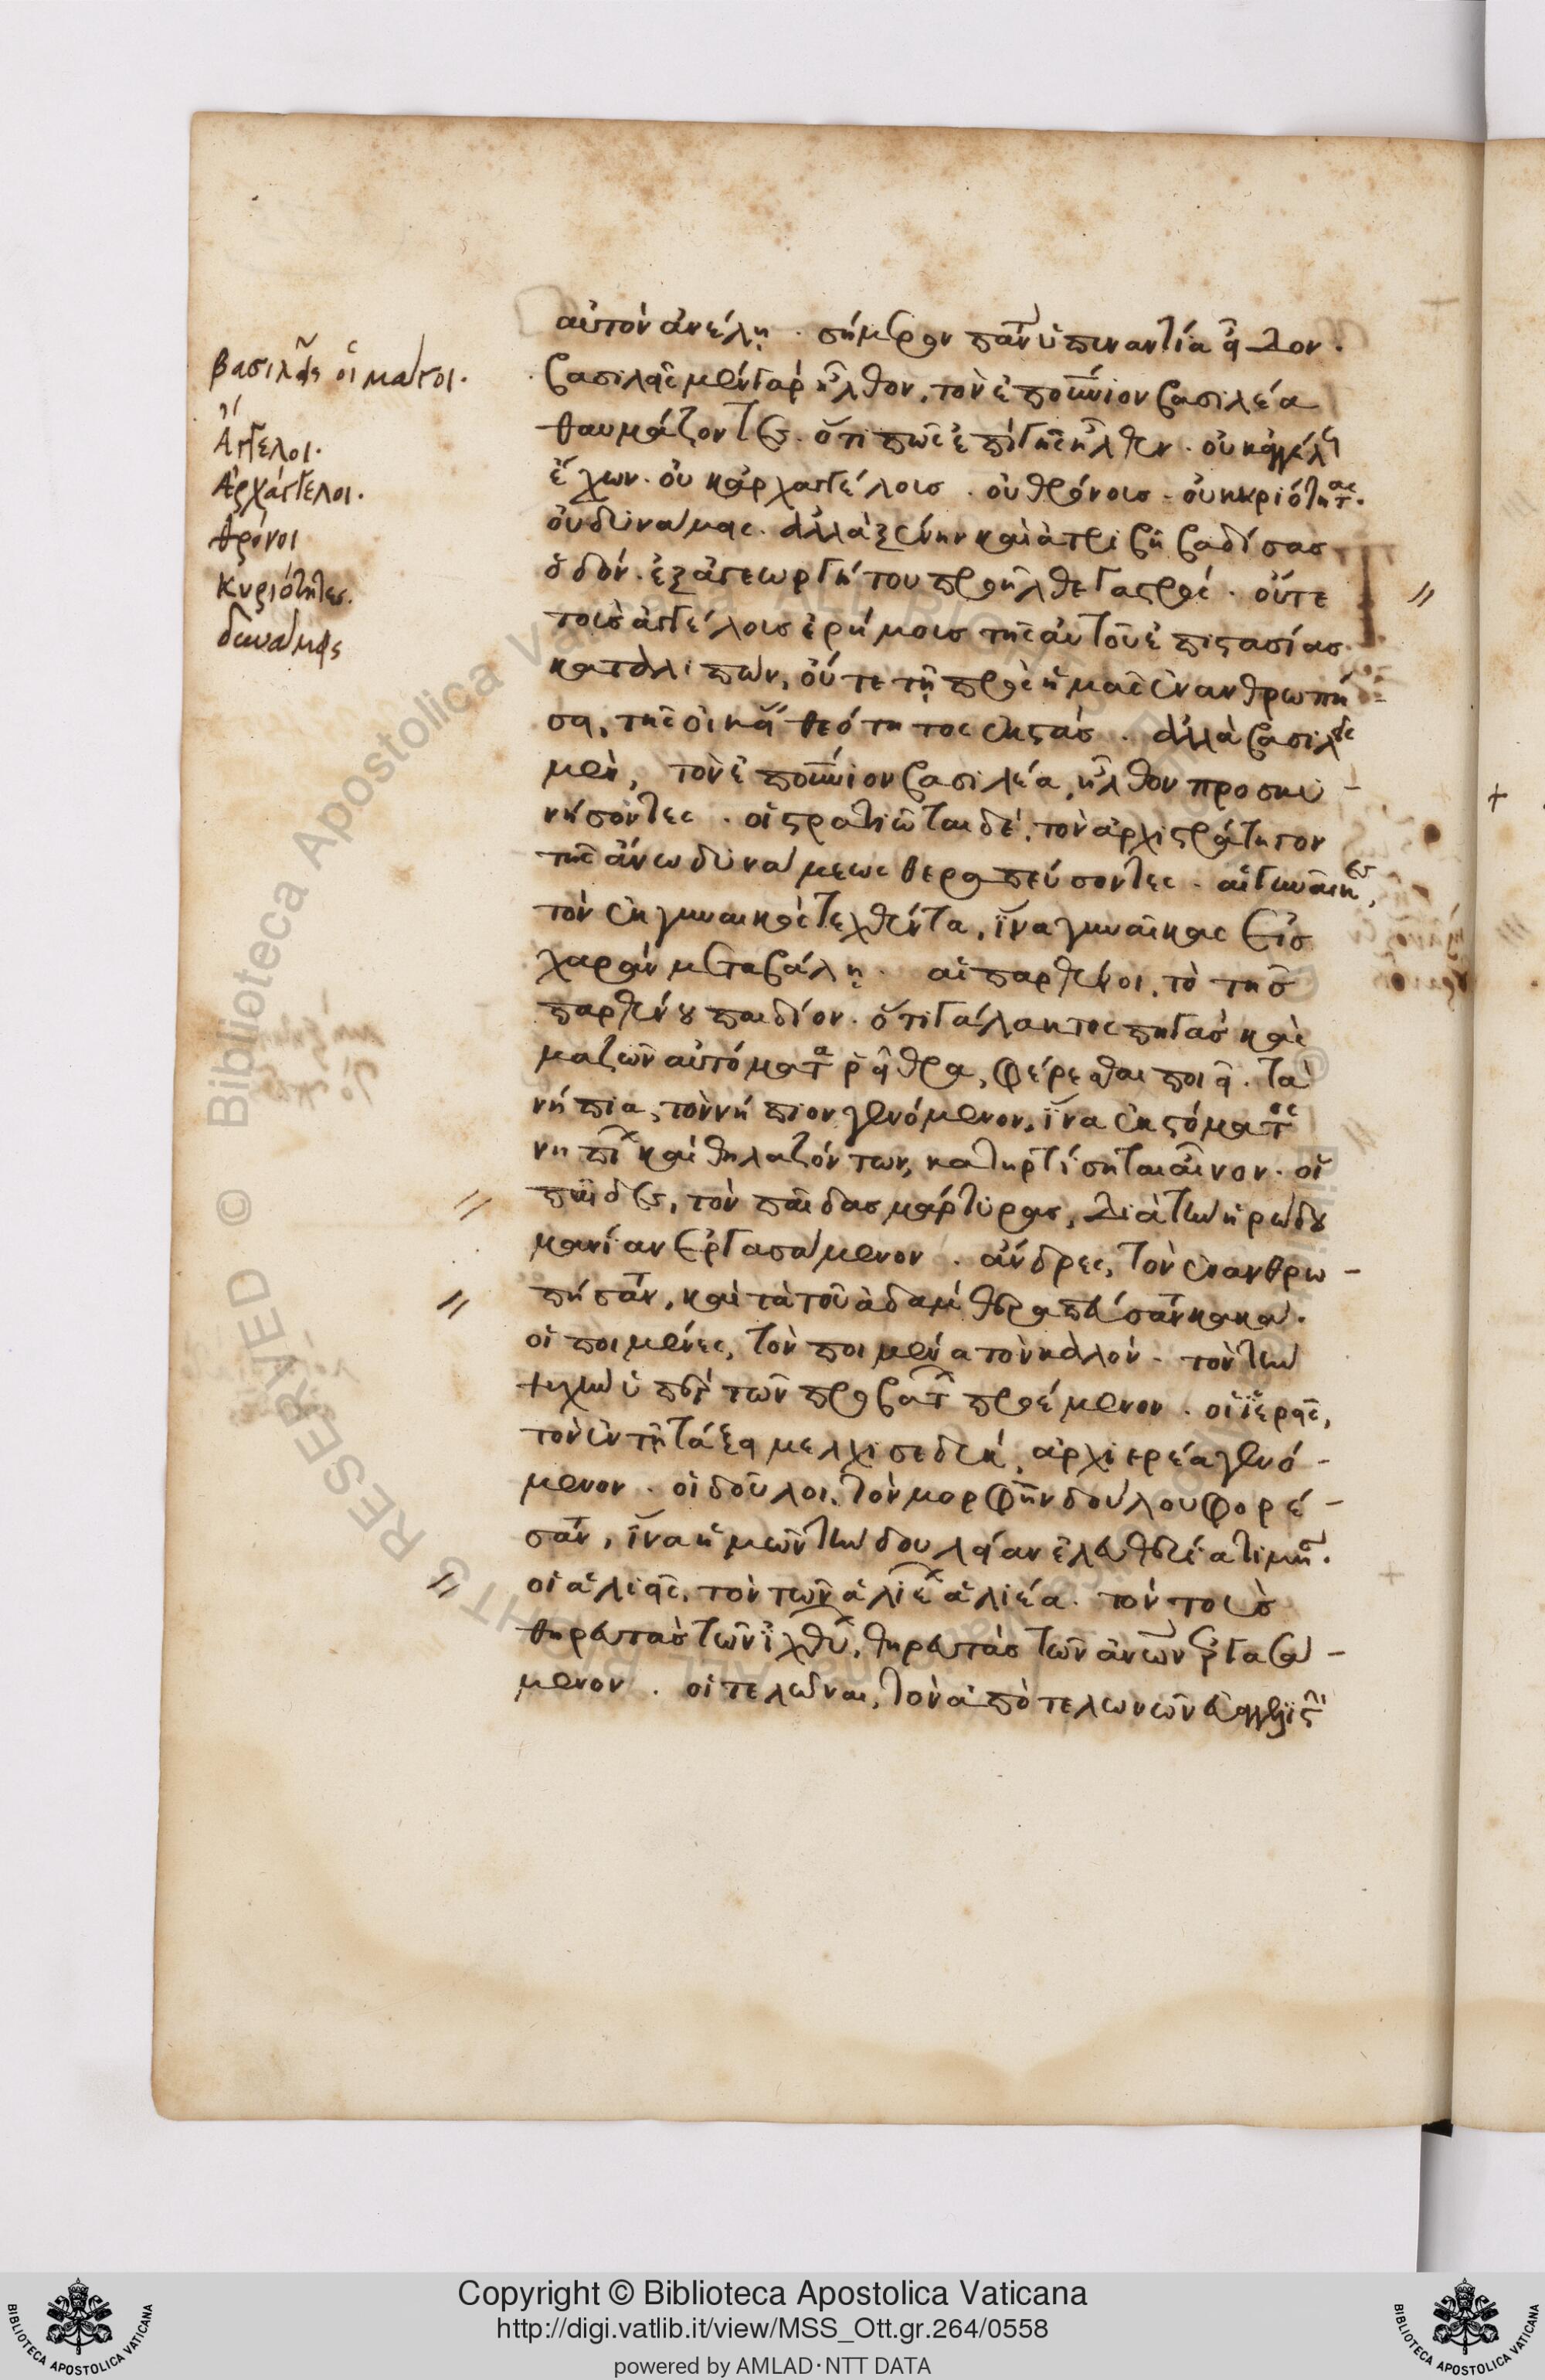 βασιλεῖς οἱ μάγοι.
Ἄγγελοι.
Ἀρχάγγελοι.
θρόνοι
κυριότητες.
δυνάμεις
αὐτὸν ἀνέλη. σήμερον πάντα ὑπεναντία εἶδον.
βασιλεῖς μὲν γὰρ ἦλθον, τὸν ἐπουράνιον βασιλέα
θαυμάζοντες. ὅτι πῶς ἐπὶ γῆς ἦλθεν. οὐκ ἀγγέλους
ἔχων. οὐκ ἀρχαγγέλους. οὐ θρόνους. οὐ κυριότητας.
οὐ δυνάμεις. ἀλλὰ ξένην καὶ ἀτριβῆ βαδίσας
ὁδόν. ἐξ ἀγεωργήτου προῆλθε γαστρός. οὔτε
τοὺς ἀγγέλους ἐρήμους τῆς αὐτοῦ ἐπιστασίας
καταλιπὼν, οὔτε τῇ πρὸς ἡμᾶς ἐνανθρωπή
σει, τῆς οἰκείας θεότητος ἐκστάς. ἀλλὰ βασιλεῖς
μὲν, τὸν ἐπουράνιον βασιλέα, ἦλθον προσκυ-
νήσοντες. οἱ στρατιῶται δὲ, τὸν ἀρχιστράτηγον
τῆς ἄνω δυνάμεως θεραπεύσοντες. αἱ γυναῖκες,
τὸν ἐκ γυναικὸς τεχθέντα, ἵνα γυναῖκας εἰς
χαρὰν μεταβάλη. αἱ παρθένοι, τὸ τῆς
παρθένου παιδίον. ὅτι γάλακτος πηγὰς καὶ
μαζῶν αὐτόματα ῥεῖθρα, φέρεσθαι ποιεῖ. τὰ
νήπια, τὸν νήπιον γενόμενον, ἵνα ἐκ στόματος
νηπίων καὶ θηλαζόντων, καταρτίσηται αἶνον. οἱ
παῖδες, τὸν παῖδας μάρτυρας, διὰ τὴν ἡρώδου
μανίαν ἐργασάμενον. ἄνδρες, τὸν ἐνανθρω-
πήσαντα, καὶ τὰ τοῦ ἀδὰμ θεραπεύσαντα κακά.
οἱ ποιμένες, τὸν ποιμένα τὸν καλόν. τὸν τὴν
ψυχὴν ὑπὲρ τῶν προβάτων προέμενον. οἱ ἱερεῖς,
τὸν ἐν τῇ τάξει μελχισεδὲκ, ἀρχιερέα γενό-
μενον. οἱ δοῦλοι, τὸν μορφὴν δούλου φορέ-
σαντα, ἵνα ἡμῶν τὴν δουλείαν ἐλευθερία τιμήση.
οἱ ἁλιεῖς, τὸν τῶν ἁλιέων ἁλιέα. τὸν τοὺς
θηρευτὰς τῶν ἰχθύων, θηρευτὰς τῶν ἀνθρώπων ἐργασά-
μενον. οἱ τελῶναι, τὸν ἀπὸ τελωνῶν εὐαγγελιστὴν
Copyright © Biblioteca Apostolica Vaticana
http://digi.vatlib.it/view/MSS_Ott.gr.264/0558
powered by AMLAD·NTT DATA